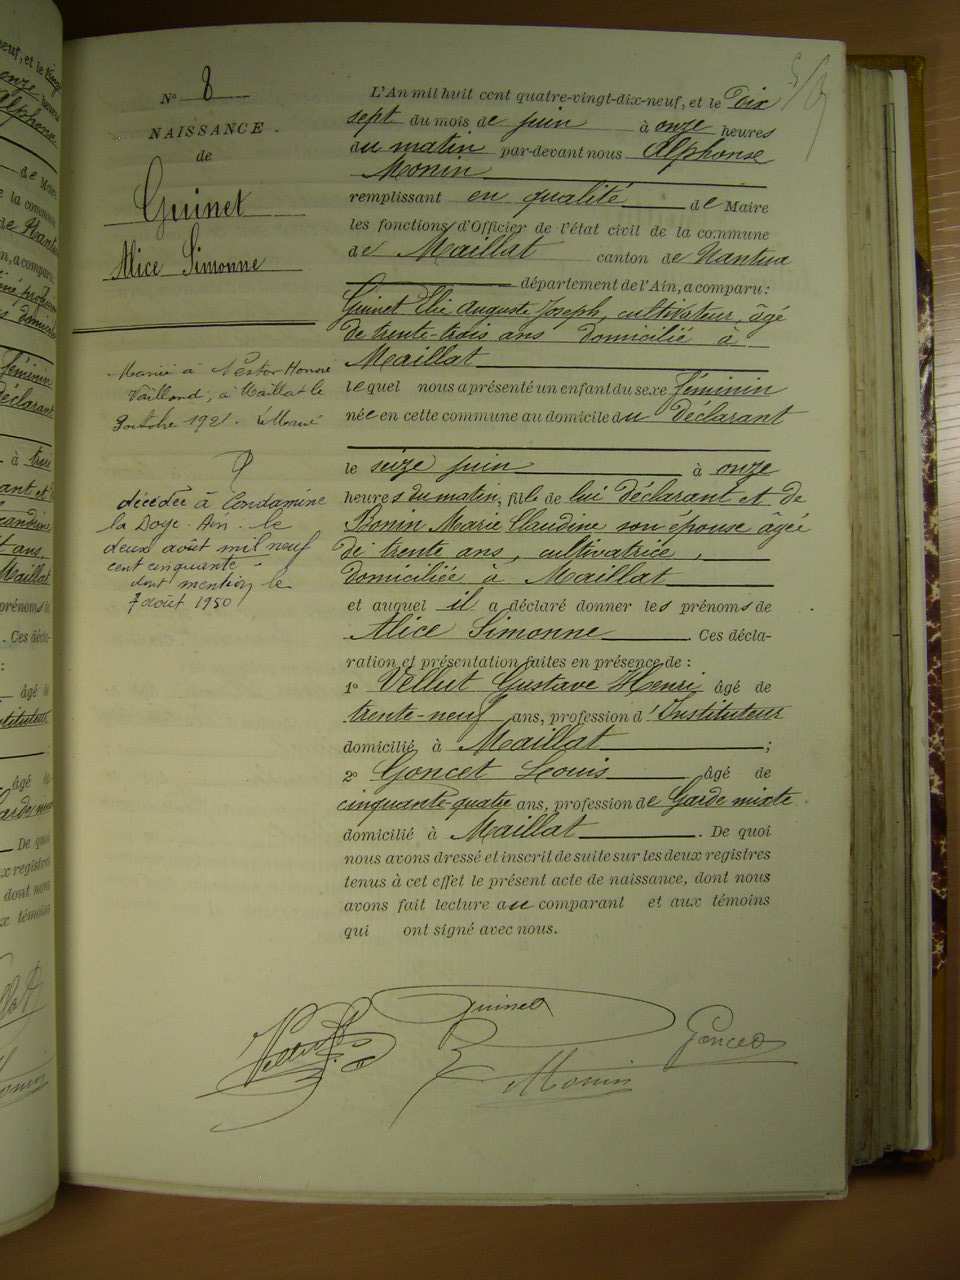 N° 8
NAISSANCE.
de
Guinet
Alice Simonne
Mariée à Nestor Honoré
Vaillond, à Maillat le
octobre 192
décédée à Condamine
la Doye. Ain. le
deux août mil neuf
cent cinquante.
dont mention le
7 août 1950
L'An mil huit cent quatre-vingt-dix-neuf, et le Dix
sept du mois de juin à onze heures
du matin par-devant nous Alphonse
Monin
remplissant en qualité de Maire
les fonctions d'Officier de l'état civil de la commune
de Maillat canton de Nantua
département de l'Ain, a comparu:
Guinet Elie Auguste Joseph, cultivateur, âgé
de trente-trois ans domicilié à
Maillat
lequel nous a présenté un enfant du sexe féminin
née en cette commune au domicile du Déclarant
le seize juin à onze
heures du matin, fille de lui déclarant et de
Bonin Marie Claudine son épouse âgée
de trente ans, cultivatrice,
domiciliée à Maillat
et auquel il a déclaré donner les prénoms de
Alice Simonne. Ces décla-
ration et présentation faites en présence de:
1° Vellut Gustave Henri âgé de
trente-neuf ans, profession d'Instituteur
domicilié à Maillat;
2° Goncet Louis âgé de
cinquante-quatre ans, profession de Garde mixte
domicilié à Maillat. De quoi
nous avons dressé et inscrit de suite sur les deux registres
tenus à cet effet le présent acte de naissance, dont nous
avons fait lecture au comparant et aux témoins
qui ont signé avec nous.
Guinet
Vellut
Goncet
Monin